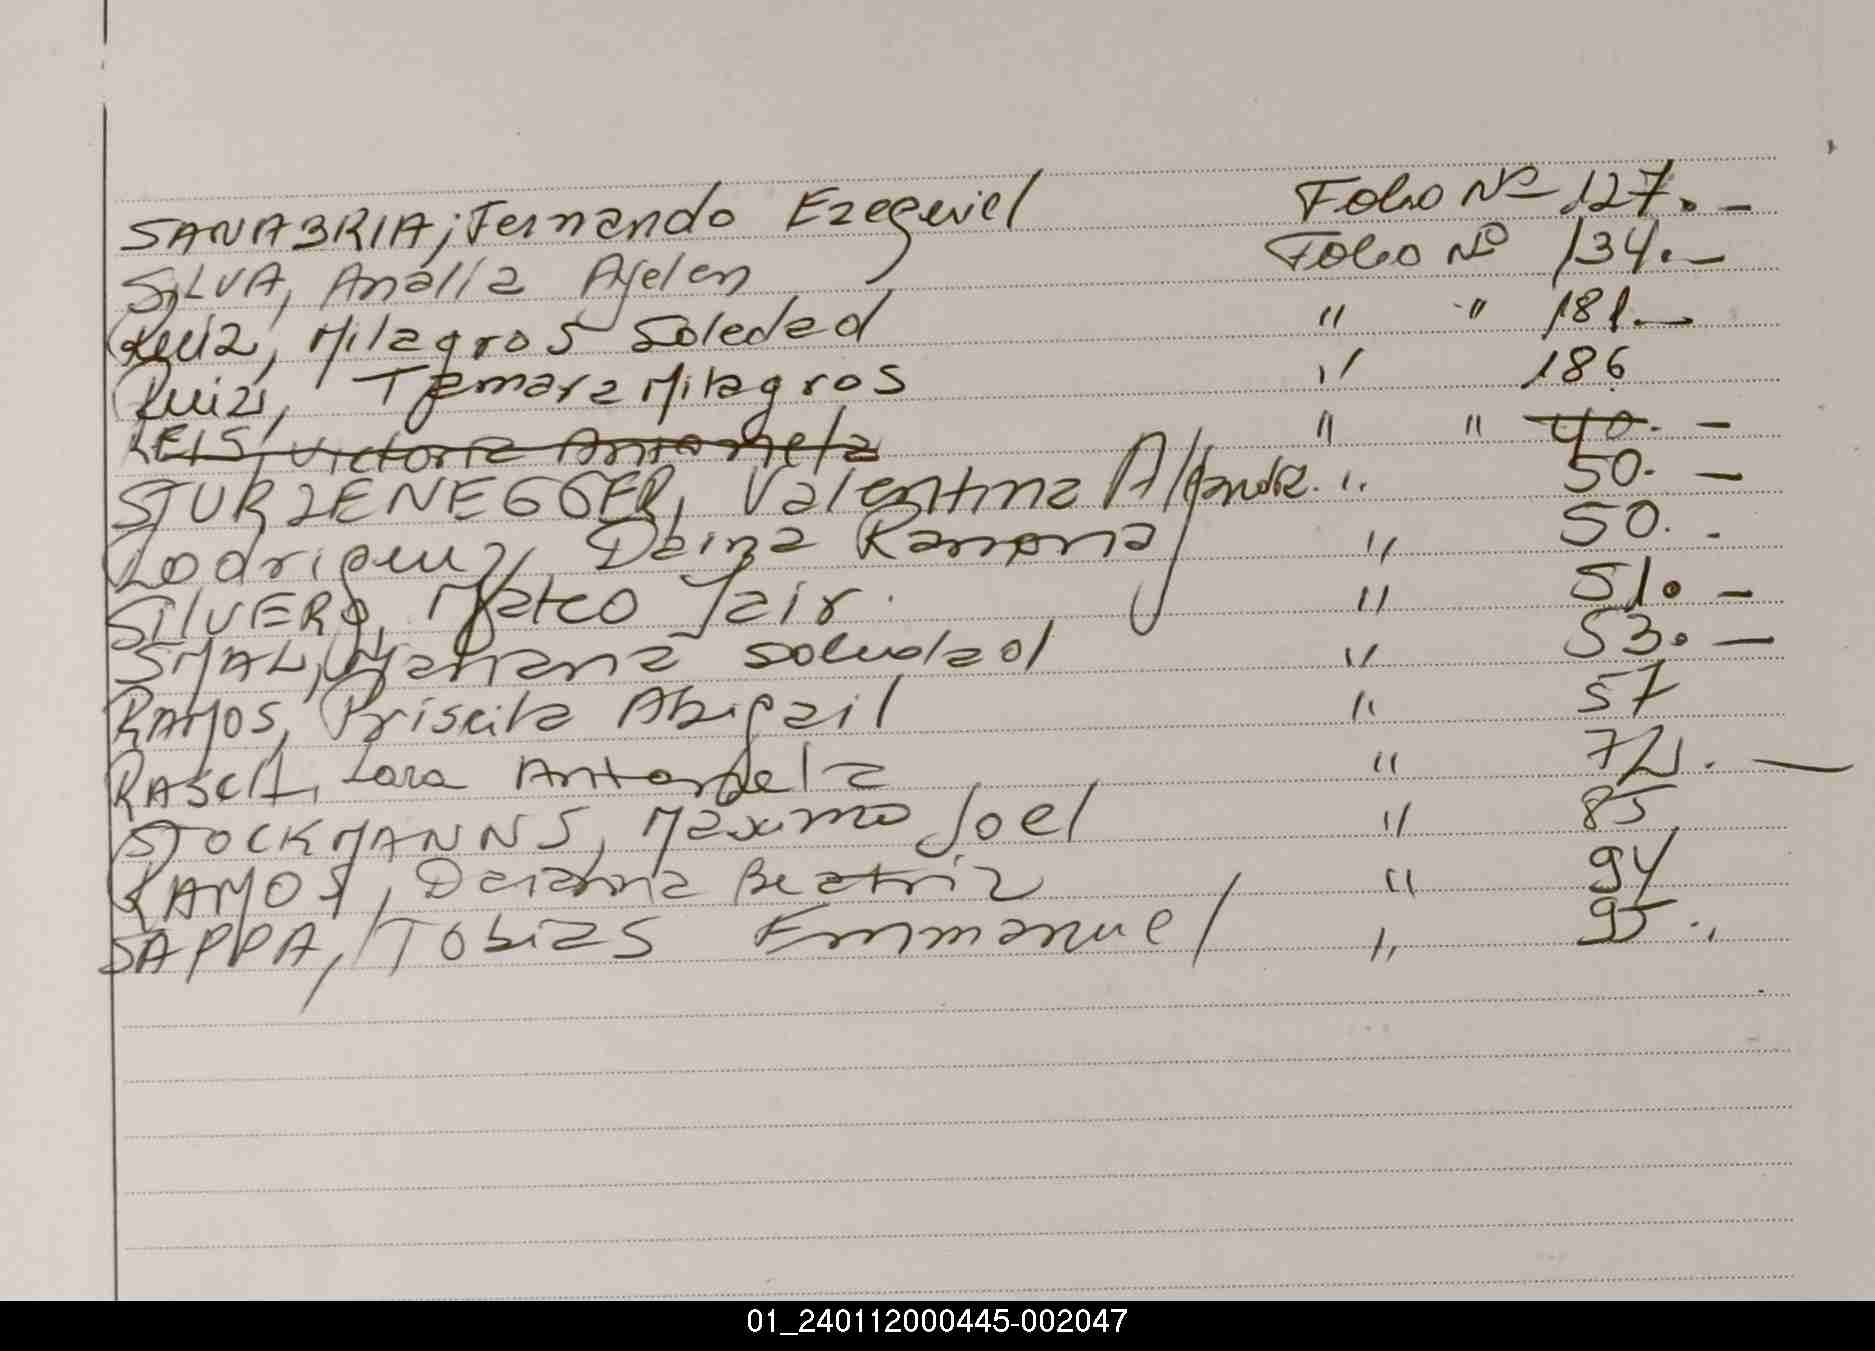 SANABRIA, Fernando Ezequiel Folio Nº 127. -
SILVA, Analia Ayelen Folio Nº 134. -
Ruiz, Milagros Soledad " " 181. -
Ruiz, Tamara Milagros " 186
REIS, Victoria Antonela " " 40. -
STURZENEGGER, Valentina Alejandra. " 50. -
Rodriguez, Daina Ramona " 50. -
SILVERO, Mateo Jair. " 51. -
SMAL, Mariana Soledad " 53. -
RAMOS, Priscila Abigail " 57
Lara Antonela " 72. -
STOCKMANNS, Maximo Joel " 85
RAMOS, Daiana Beatriz " 94
SAPPA, Tobias Emmanuel " 95. -
01_240112000445-002047